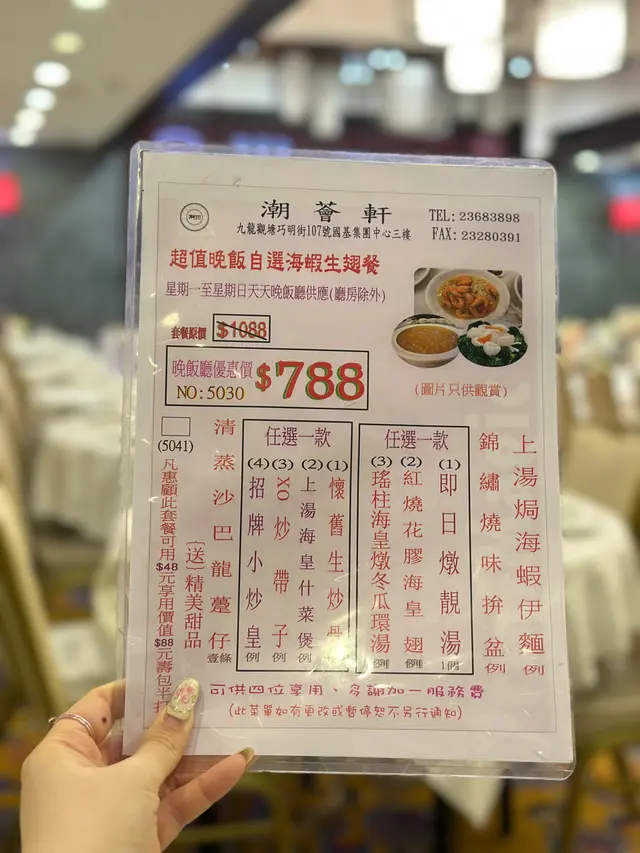 潮薈軒
九龍觀塘巧明街107號國基集團中心三樓
TEL: 23683898
FAX: 23280391
超值晚飯自選海蝦生翅餐
星期一至星期日天天晚飯廳供應(廳房除外)
套餐原價 $1088
晚飯廳優惠價
NO: 5030
$788
(圖片只供觀賞)
上湯焗海蝦伊麵 例
錦繡燒味拚盆 例
任選一款
(1) 即日燉靚湯 1個
(2) 紅燒花膠海皇翅 例
(3) 瑤柱海皇燉冬瓜環湯 例
任選一款
(1) 懷舊生炒骨
(2) 上湯海皇什菜煲 例
(3) XO炒帶子 例
(4) 招牌小炒皇 例
清蒸沙巴龍躉仔 壹條
(送)精美甜品
(5041)
凡惠顧此套餐可用$48元享用價值$88元壽包半打
可供四位享用、多謝加一服務費
(此菜單如有更改或暫停恕不另行通知)